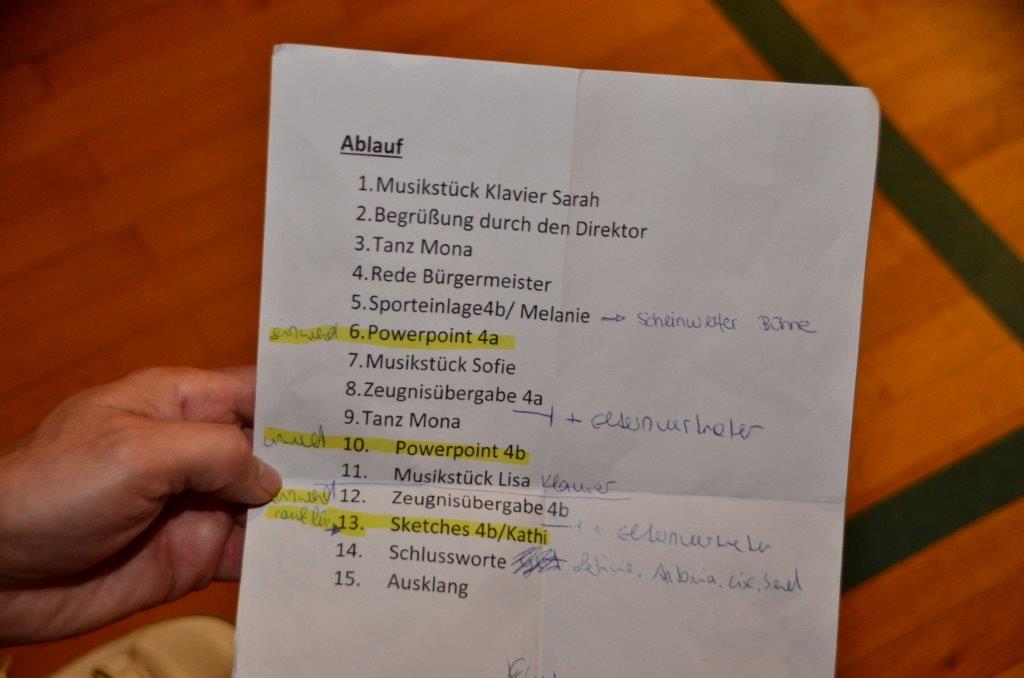 Ablauf
1. Musikstück Klavier Sarah
2. Begrüßung durch den Direktor
3. Tanz Mona
4. Rede Bürgermeister
5. Sporteinlage4b/ Melanie → Scheinwerfer Bühne
6. Powerpoint 4a
7. Musikstück Sofie
8. Zeugnisübergabe 4a
+ Elternvertreter
9. Tanz Mona
10. Powerpoint 4b
11. Musikstück Lisa Klavier
12. Zeugnisübergabe 4b
+ Elternvertreter
13. Sketches 4b/Kathi
14. Schlussworte
15. Ausklang